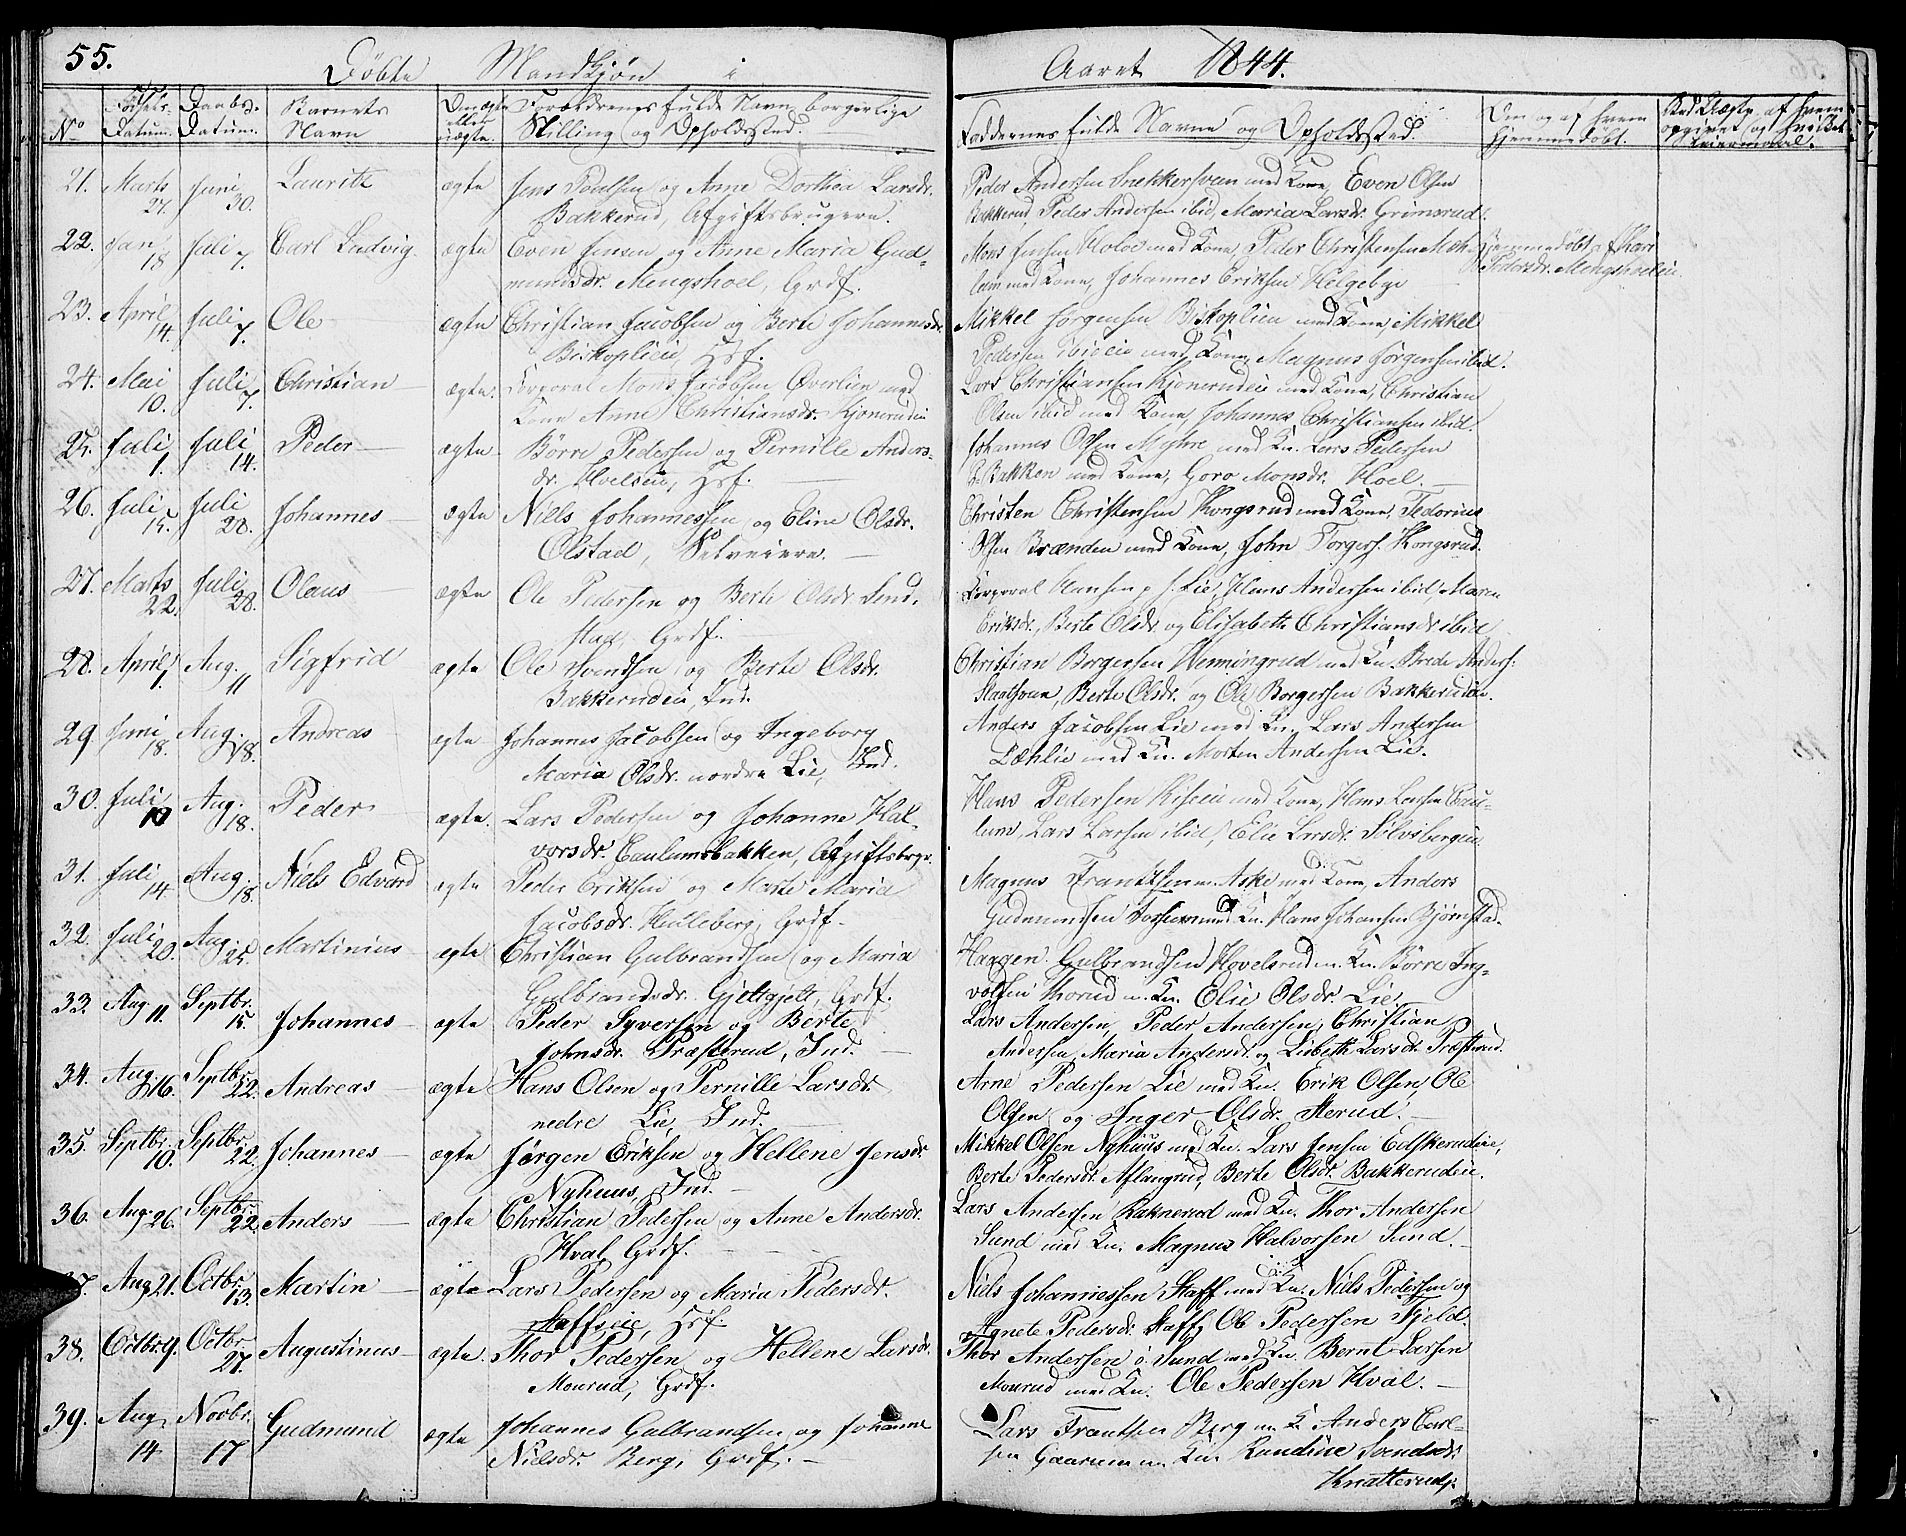 55. Døbte Mandkjøn i Aaret 1844.
No Fødsels-Datum. Daabs-Datum. Barnets Navn Om ægte eller uægte. Forældrenes fulde Navn, borgerlige Stilling og Opholdssted. Faddernes fulde Navne og Opholdssted. Om og af hvem hjemmedøbt.
21. Marts 27. Juni 30. Lauritz ægte Jens Poulsen og Anne Dorthea Larsdr. Peder Andersen Snekkersveen med Kone, Even Olsen
Bakkerud, Afgiftsbrugere. Bakkerud, Peder Andersen ibid, Maria Larsdr. Grimsrud.
22. Jan 18 Juli 7. Carl Ludvig ægte Even Jensen og Anne Maria Gud- Mons Jensen Holoe med Kone, Peder Christensen Hjemmedøbt af Kari
mundsdr. Mengshoel, Grdf. med Kone, Johannes Eriksen Helgebye Pedersdr. Mengshoeleie
23. April 14. Juli 7. Ole ægte Christian Jacobsen og Berte Johannesdr. Mikkel Jørgensen Biskoplien med Kone, Mikkel
Biskoplieie, Hsf. Pedersen ibideie med Kone, Magnus Jørgensen ibid.
24. Mai 10. Juli 7. Christian ægte. Korporal Mons Jacobsen Øverlien med Lars Christiansen Kjonerudeie med Kone, Christian
Kone Anne Christiansdr. Kjonerudeie Olsen ibid med Kone, Johannes Christiansen ibid.
25. Juli 1. Juli 14. Peder ægte Børre Pedersen og Pernille Anders- Johannes Olsen Myhre med Kn. Lars Pedersen
dr. Hoelseie, Hsf. Bakken med Kone, Goro Monsdr. Hoel.
26. Juli 15. Juli 28. Johannes ægte Niels Johannessen og Eline Olsdr. Christen Christensen Kongsrud med Kone, Fedorius
Olstad, Selveiere. Olsen Brænden med Kone, John Torgers. Kongsrud.
27. Marts 22. Juli 28. Olaus ægte Ole Pedersen og Berte Olsdr. Korporal Hansen Lie, Hans Andersen ibid, Maren
Grdf. Eriksdr., Berte Olsdr. og Elisabeth Christiansdr. ibid
28. April 1. Aug. 11 Sigfrid ægte Ole Svendsen og Berte Olsdr. Christian Borgersen Hemmingrud med Kn. Brede Anders:
Bakkerudeie, Ind. Berte Olsdr. og Ole Borgersen Bakkerudeie.
29 Juni 18. Aug. 18. Andreas ægte Johannes Jacobsen og Ingeborg Anders Jacobsen Lie med Kn. Lars Andersen
Maria Olsdr. nordre Lie, Ind. Dæhlie med Kn. Morten Andersen Lie.
30. Juli 10 Aug. 18. Peder ægte. Lars Pedersen og Johanne Hal- Hans Pedersen Riseeie med Kone, Hans Larsen Cau-
vorsdr. Caulumsbakken, Afgiftsbrge. lum, Lars Larsen ibid, Elie Larsdr. Sølvsbergeie.
31. Juli 14. Aug. 18. Niels Edvard ægte Peder Eriksen og Marte Maria Magnus Frantzen n. Aske med Kone, Anders
Jacobsdr. Hulleberg, Grdf. Gudmundsen med Kn. Hans Johansen Bjørnstad.
32. Juli 20. Aug. 25. Martinius ægte Christian Gulbrandsen og Maria Haagen Gulbrandsen Hovelsrud m. Kn. Børre Ing-
Gulbrandsdr. Gjetsgjelt, Grdf. volfsen Thorud m. Kn. Elie Olsdr. Lie.
33. Aug. 11. Septbr. 15. Johannes ægte Peder Syversen og Berte Lars Andersen, Peder Andersen, Christian
Johnsdr. Præsterud, Ind. Andersen, Maria Andersdr. og Lisbeth Larsdr. Præsterud.
34. Aug. 16. Septbr. 22. Andreas ægte Hans Olsen og Pernille Larsdr. Arne Pedersen Lie med Kn. Erik Olsen, Ole
nedre Lie, Ind. Olsen og Inger Olsdr. Sterud.
35. Septbr. 10. Septbr. 22. Johannes ægte Jørgen Eriksen og Hellene Jensdr. Mikkel Olsen Nyhuus med Kn. Lars Jensen Edskerudeie,
Nyhuus, Ind. Berte Pedersdr. Aflangrud, Berte Olsdr. Bakkerudeie.
36. Aug. 26. Septbr. 22. Anders ægte Christian Pedersen og Anne Andersdr. Lars Andersen Raknerud med Kn. Thor Andersen
Hval, Grdf. Sund med Kn. Magnus Halvorsen Sund.
37. Aug. 21. Octbr. 13. Martin ægte Lars Pedersen og Maria Pedersdr. Niels Johannessen Staff med Kn. Niels Pedersen og
Staffseie, Hsf. Agnete Pedersdr. Staff, Ole Pedersen Fjeld.
38. Octbr. 9. Octbr. 27. Augustinus ægte. Thor Pedersen og Hellene Larsdr. Thor Andersen ø. Sund med Kn. Bernt Larsen
Monrud, Grdf. Monrud med Kn. Ole Pedersen Hval.
39. Aug 14 Novbr. 17 Gudmund ægte Johannes Gulbrandsen og Johanne Lars Frantsen Berg m. K. Anders Carl-
Nielsdr. Berg, Grdf. sen Gaarum m. Kn. Randine Svendsdr.
Knatterud.